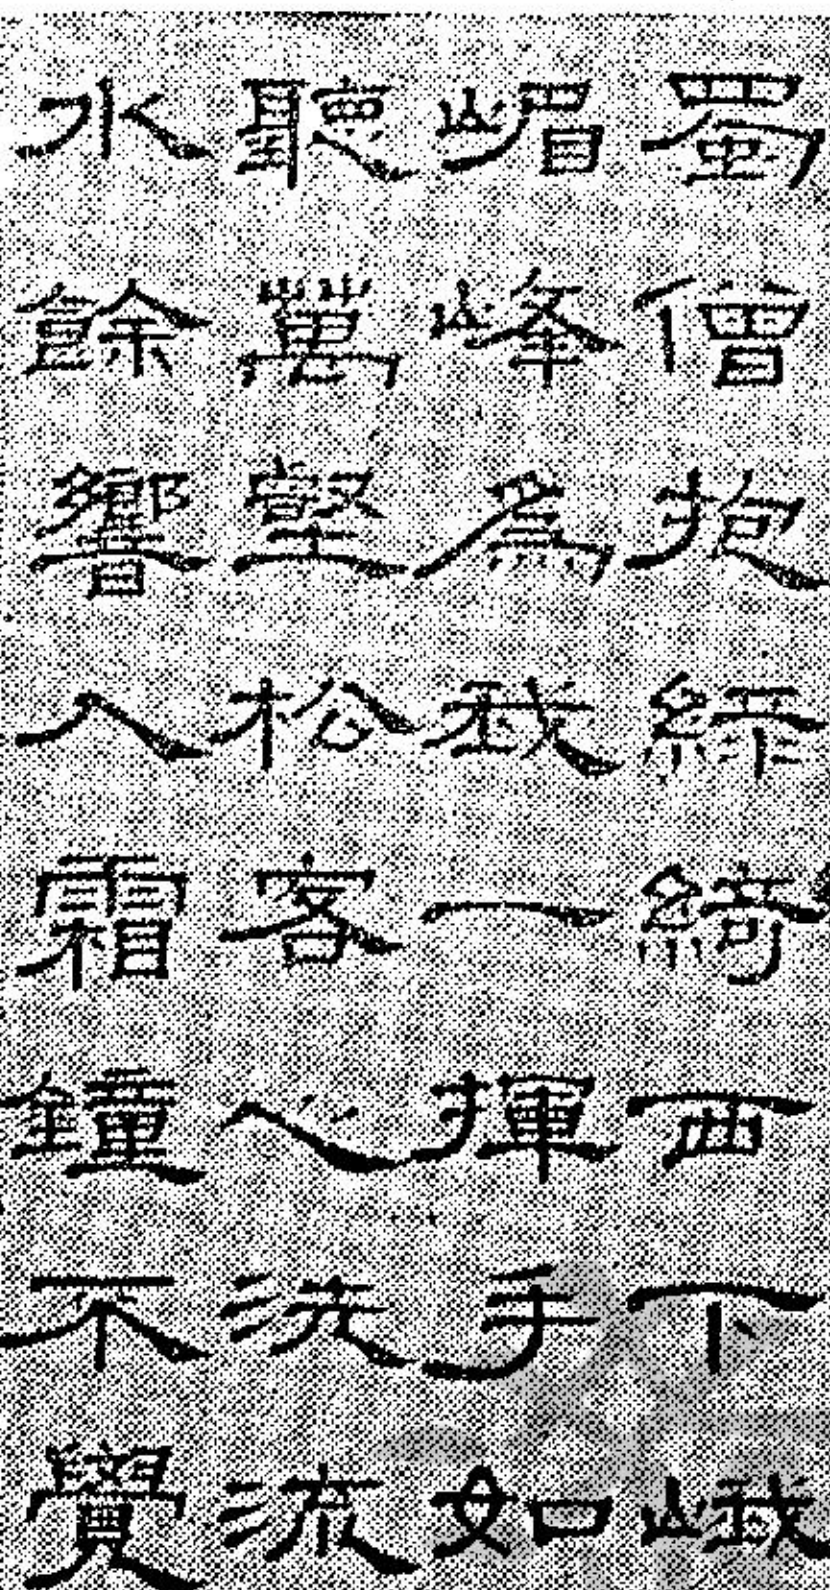 蜀僧抱綠綺西下峨
嵋峰爲我一揮手如
聽萬壑松客心洗流
水餘響入霜鐘不覺